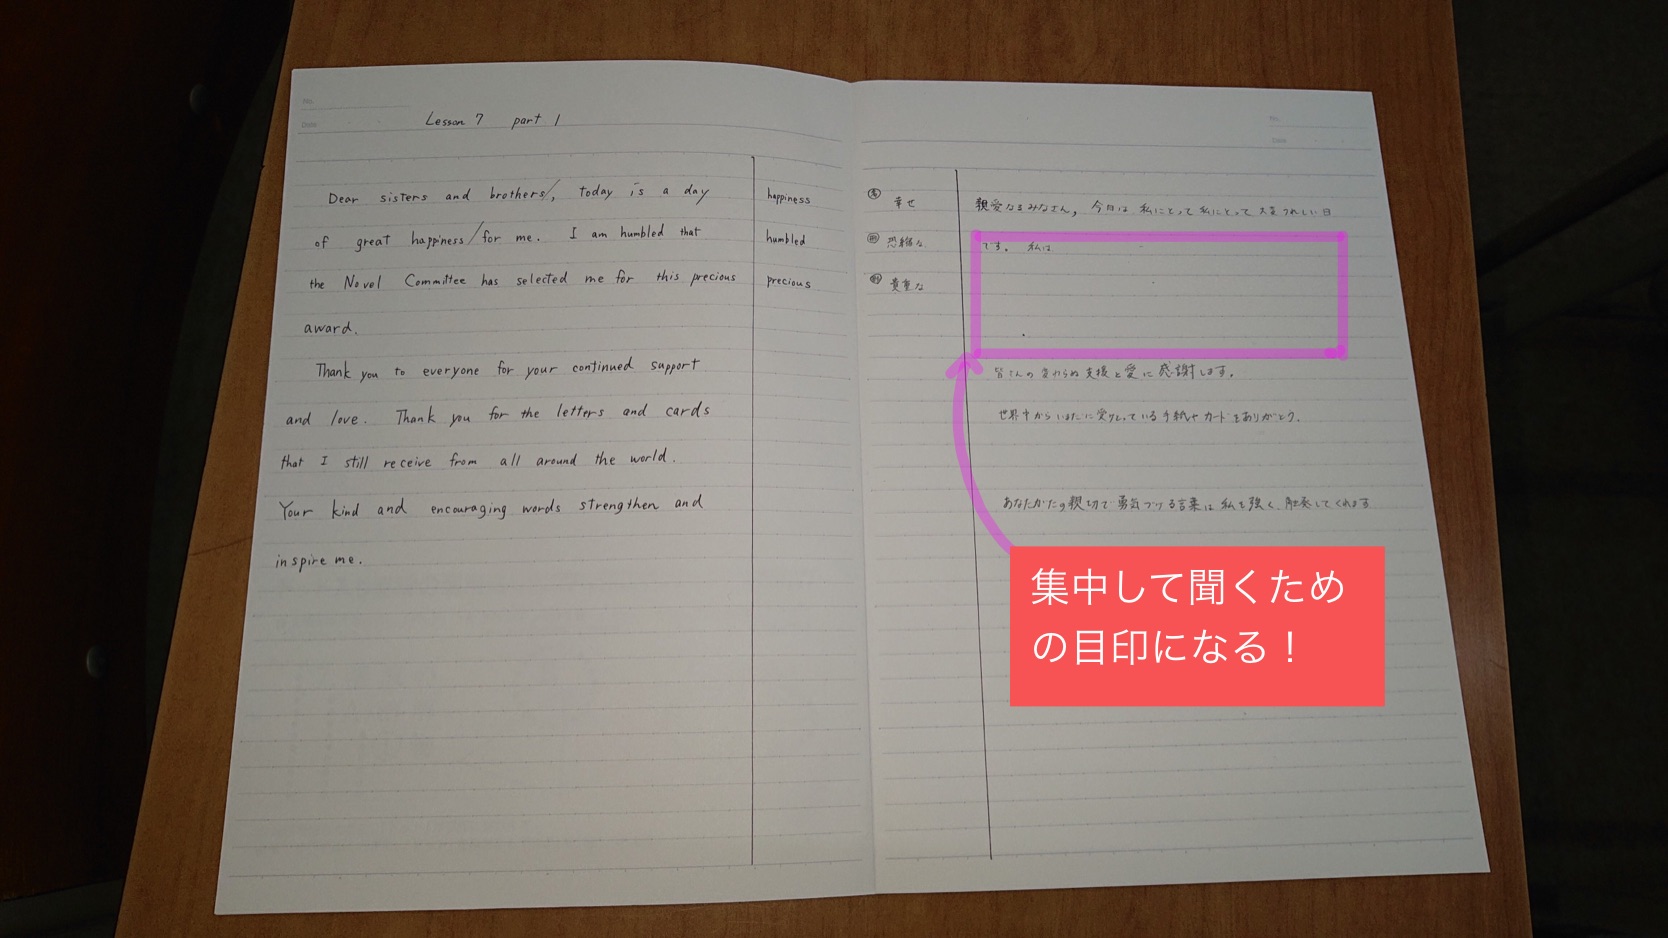 No.
Date
Lesson 7 part 1
Dear sisters and brothers/, today is a day
of great happiness/for me. I am humbled that
the Novel Committee has selected me for this precious
award.
Thank you to everyone for your continued support
and love. Thank you for the letters and cards
that I still receive from all around the world.
Your kind and encouraging words strengthen and
inspire me.
happiness
humbled
precious
No.
Date
幸せ
恐縮な
貴重な
親愛なるみなさん, 今日は 私にとって 私にとって 大変うれしい日
です。 私は
皆さんの変わらぬ支援と愛に感謝します。
世界中からいまだに受けとっている手紙やカードをありがとう.
あなたがたの親切で勇気づける言葉は私を強く、してくれます
集中して聞くため
の目印になる！